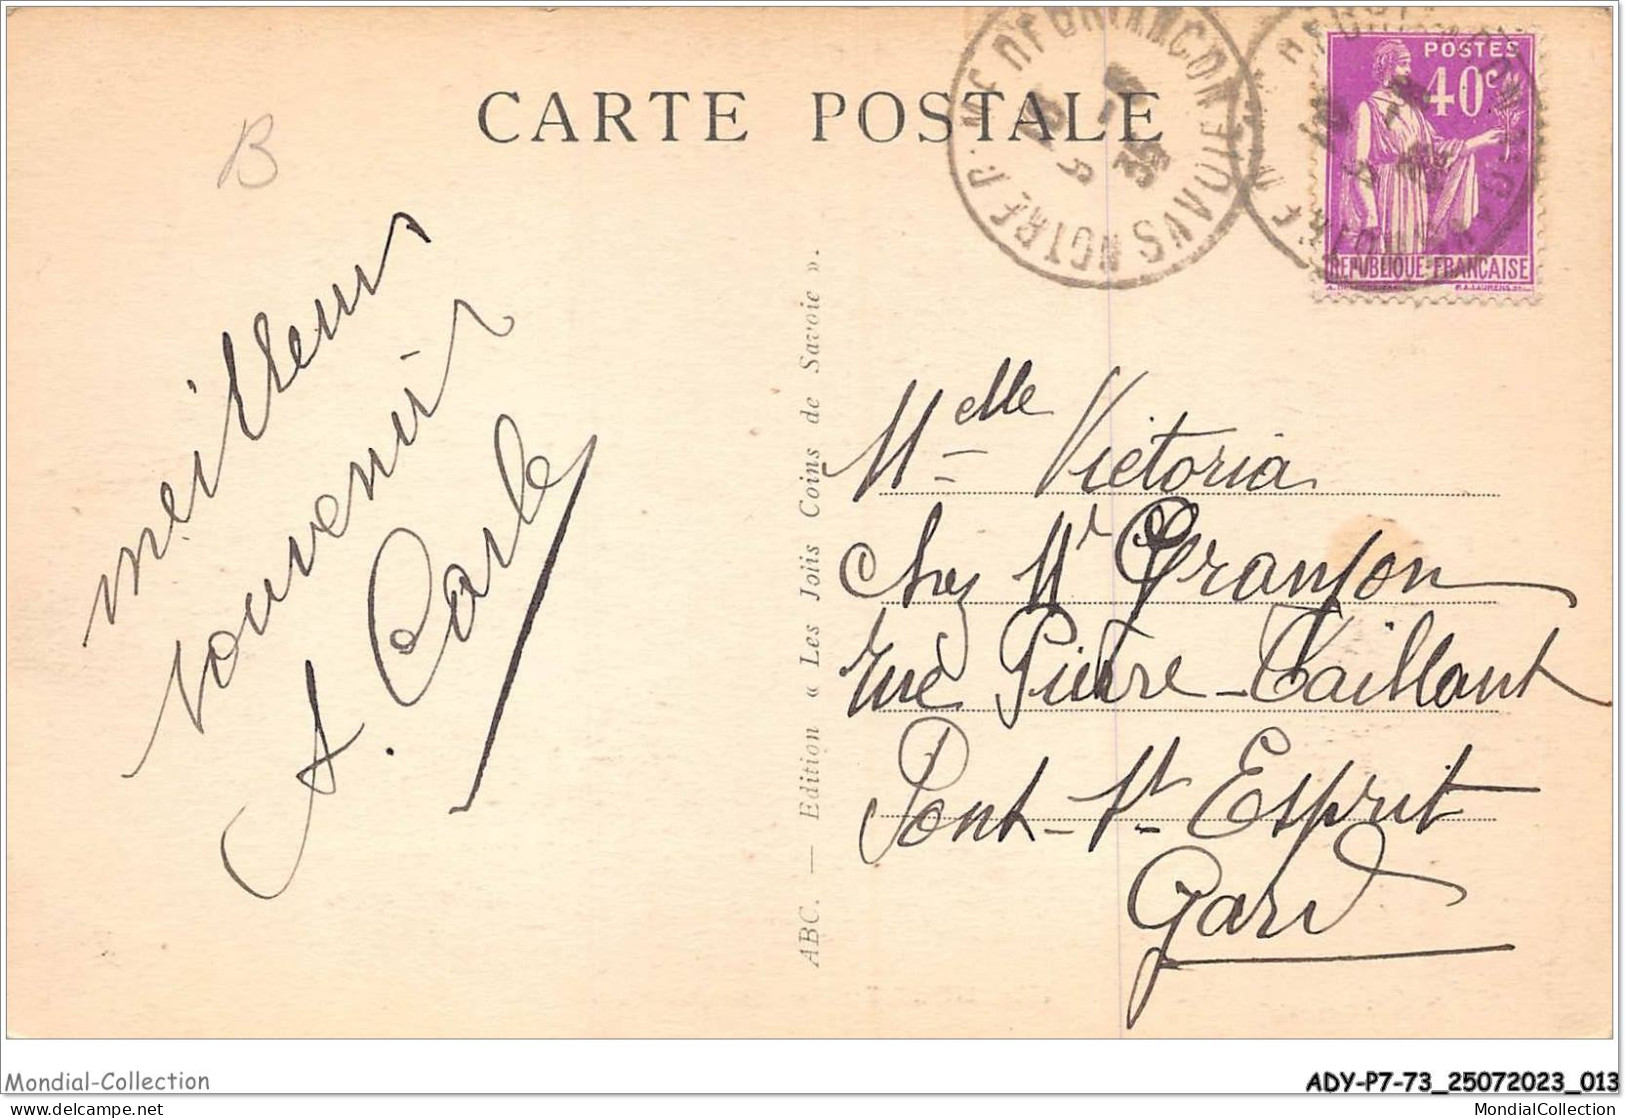 CARTE POSTALE
B
POSTES
40c
REPUBLIQUE FRANÇAISE
NOTRE D. Me DE BRIANCON SAVOIE
35
meilleurs
souvenir
A. Carle
ABC. — Edition « Les Jolis Coins de Savoie ».
Melle Victoria
Chez Mr Granjon
rue Pierre-Taillant
Pont-St-Esprit
Gard
Mondial-Collection
ADY-P7-73_25072023_013
www.delcampe.net
MondialCollection